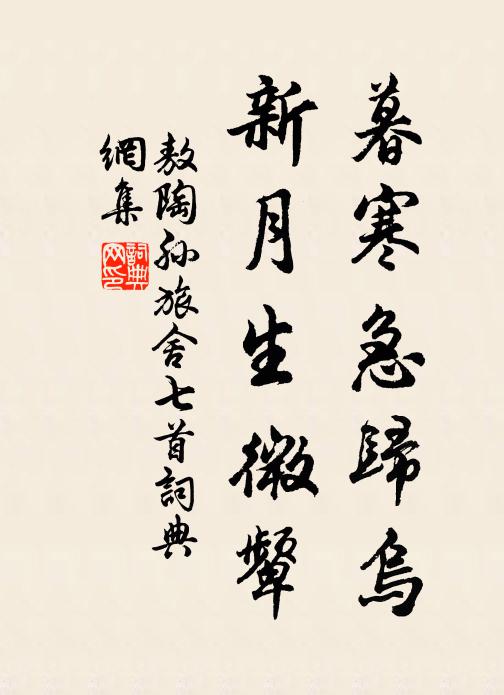 暮寒急歸烏
新月生微顰
敖陶孙旅舍七首詞典
網集
詞典网印